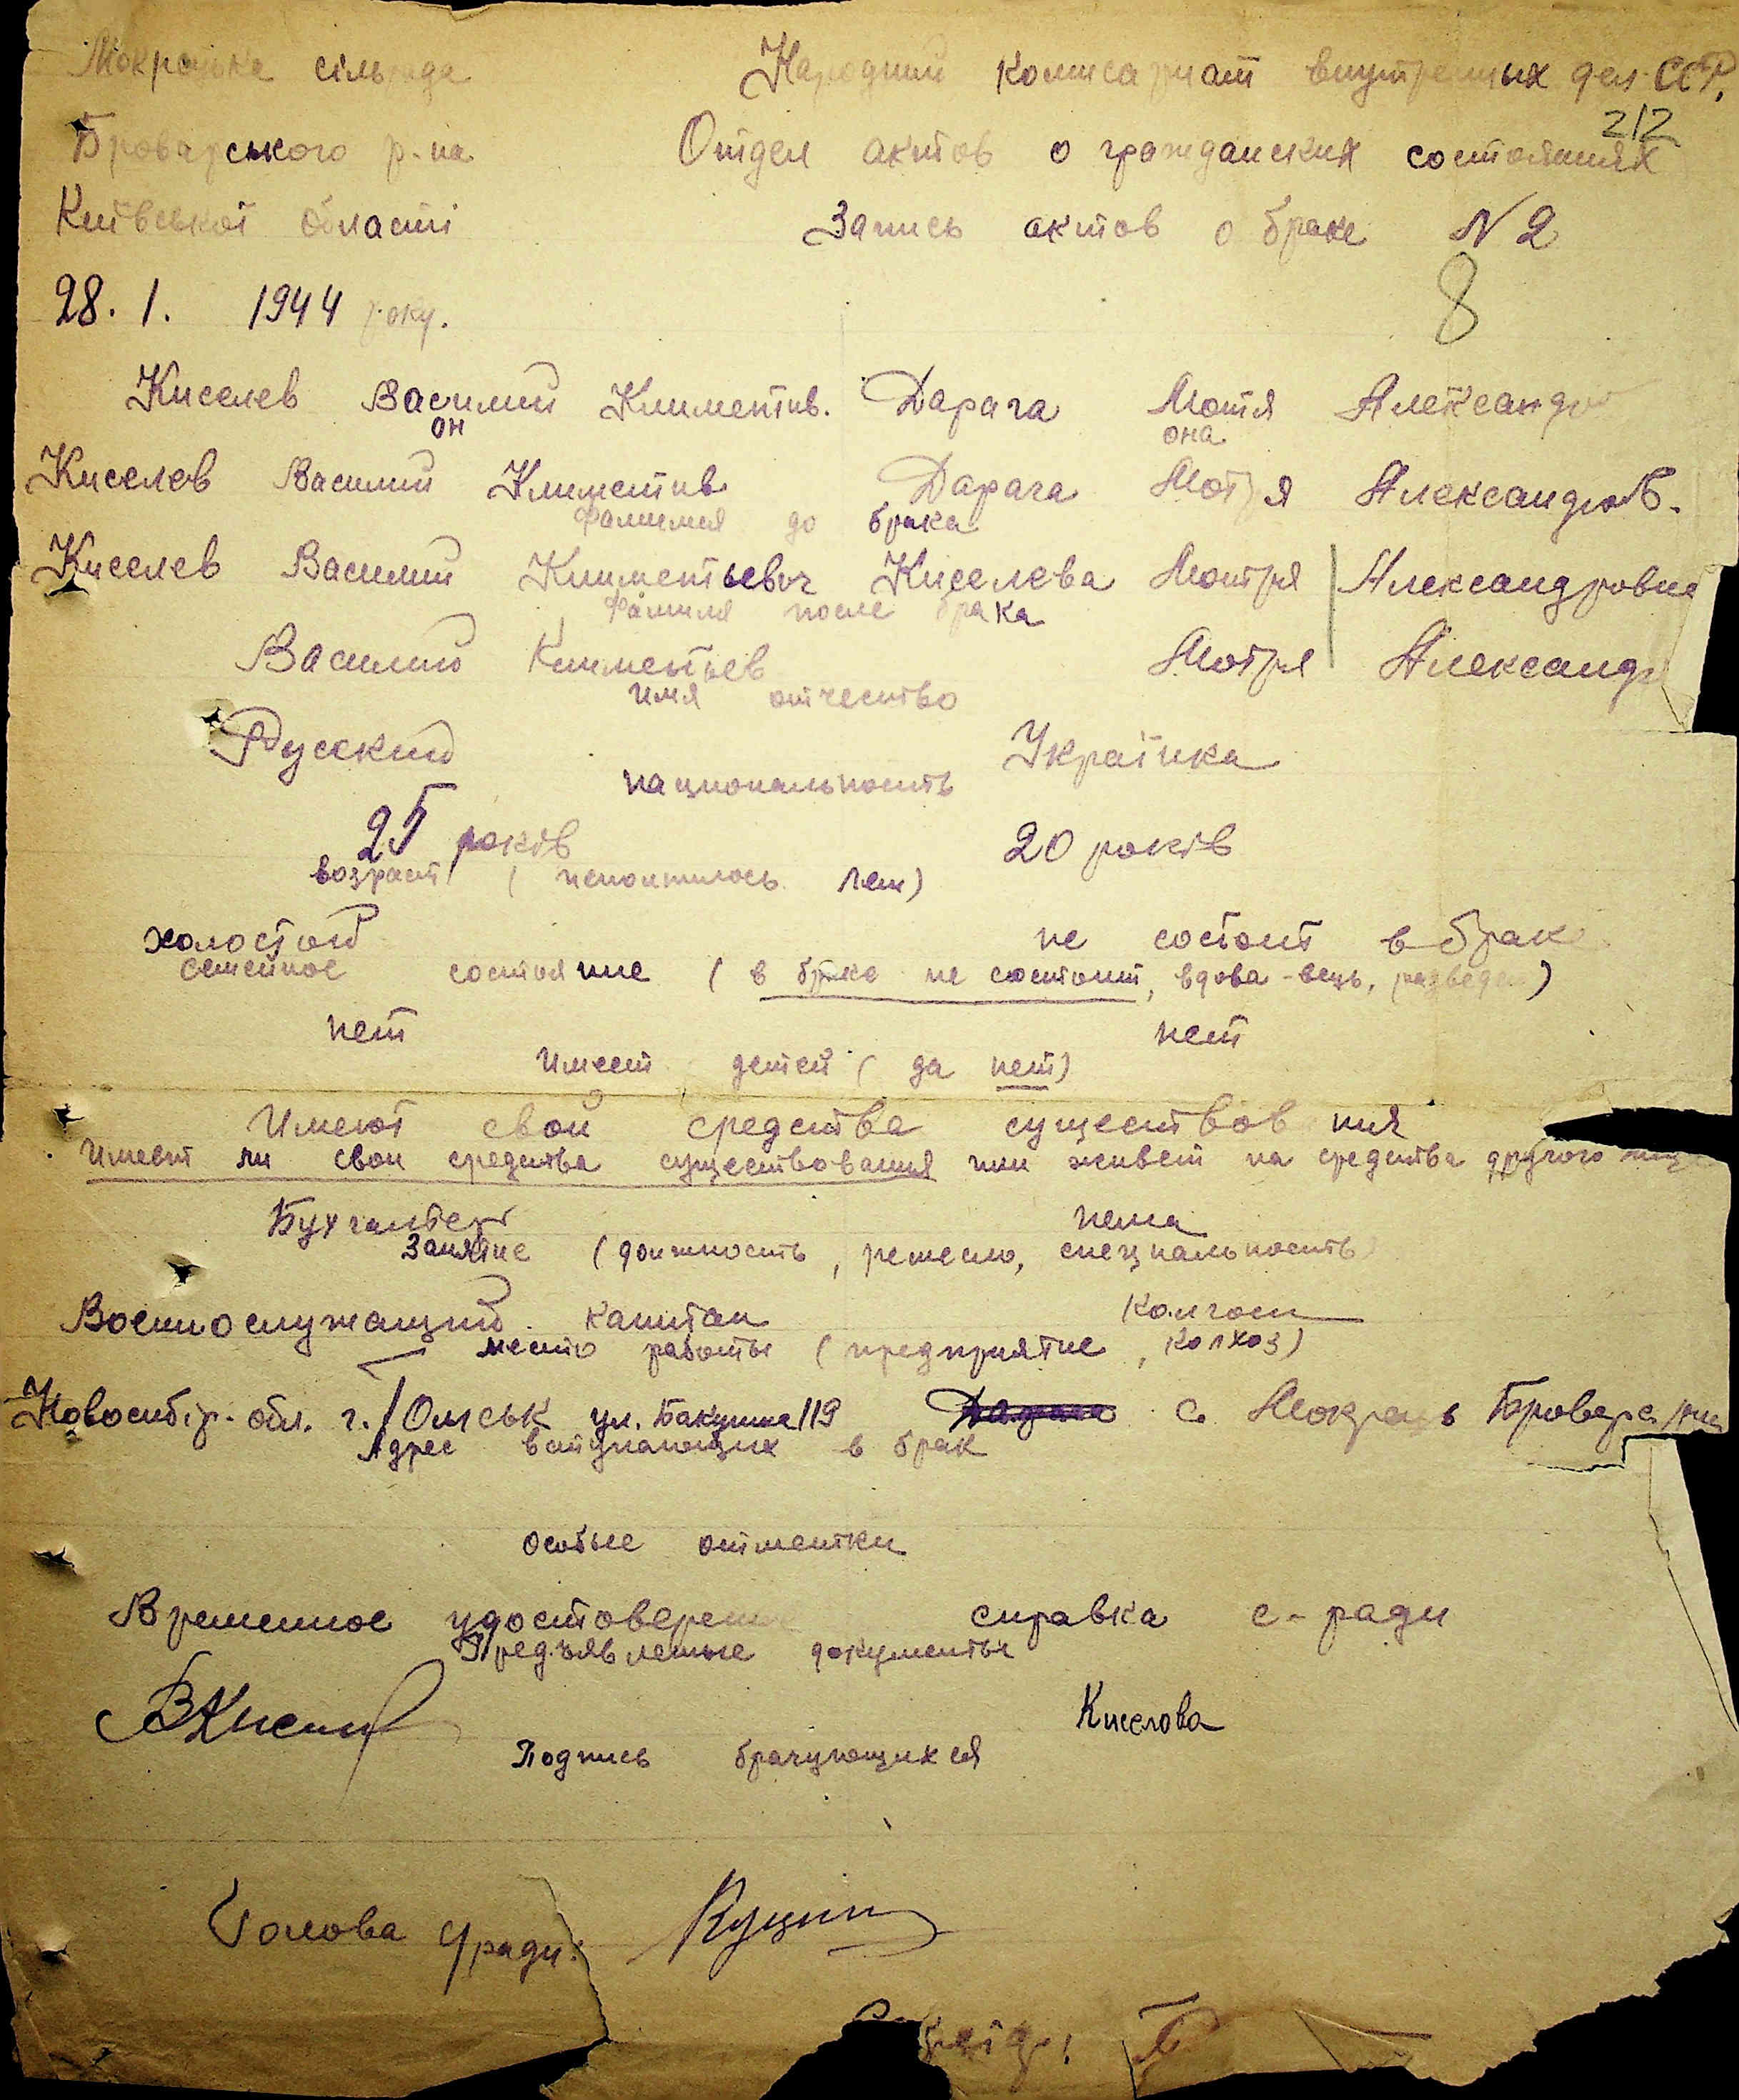 Мокрецька сільрада
Народний комисариат внутренных дел СССР.
212
Броварського р-на
Отдел актов о гражданских состояниях
Київської області
Запись актов о браке N 2
28. 1. 1944 року.
8
Киселев Василий Климентив. Дарага Мотя Александ
он она
Киселев Василий Климентив Дарага Мотря Александров.
Фамилия до брака
Киселев Василий Климентьевич Киселева Мотря Александровна
Фамиля после брака
Василий Климентьев Мотря Александ
имя отчество
Русский Українка
национальность
25 років 20 років
возраст ( исполнилось лет)
холостой не состоит в брак
семейное состояние ( в браке не состоит, вдова-вец, разведен)
нет нет
Имеет детей ( да нет)
Имеют свои средства существов ния
Имеет ли свои средства существования или живет на средства другого лиц
Бухгалтер нема
Занятие (должность, ремесло, специальность)
Военнослужащий капитан колгосп
место работы (предприятие, колхоз)
Новосибір. обл. г. Омськ ул. Бакунина 119 Дарага с. Мокрець Броварс
Адрес вступающих в брак
Особые отметки
Временное удостоверение справка с-ради
Предъявленые документы
ВКисел Киселова
Подпись брачующихся
Голова с/ради: Куцин